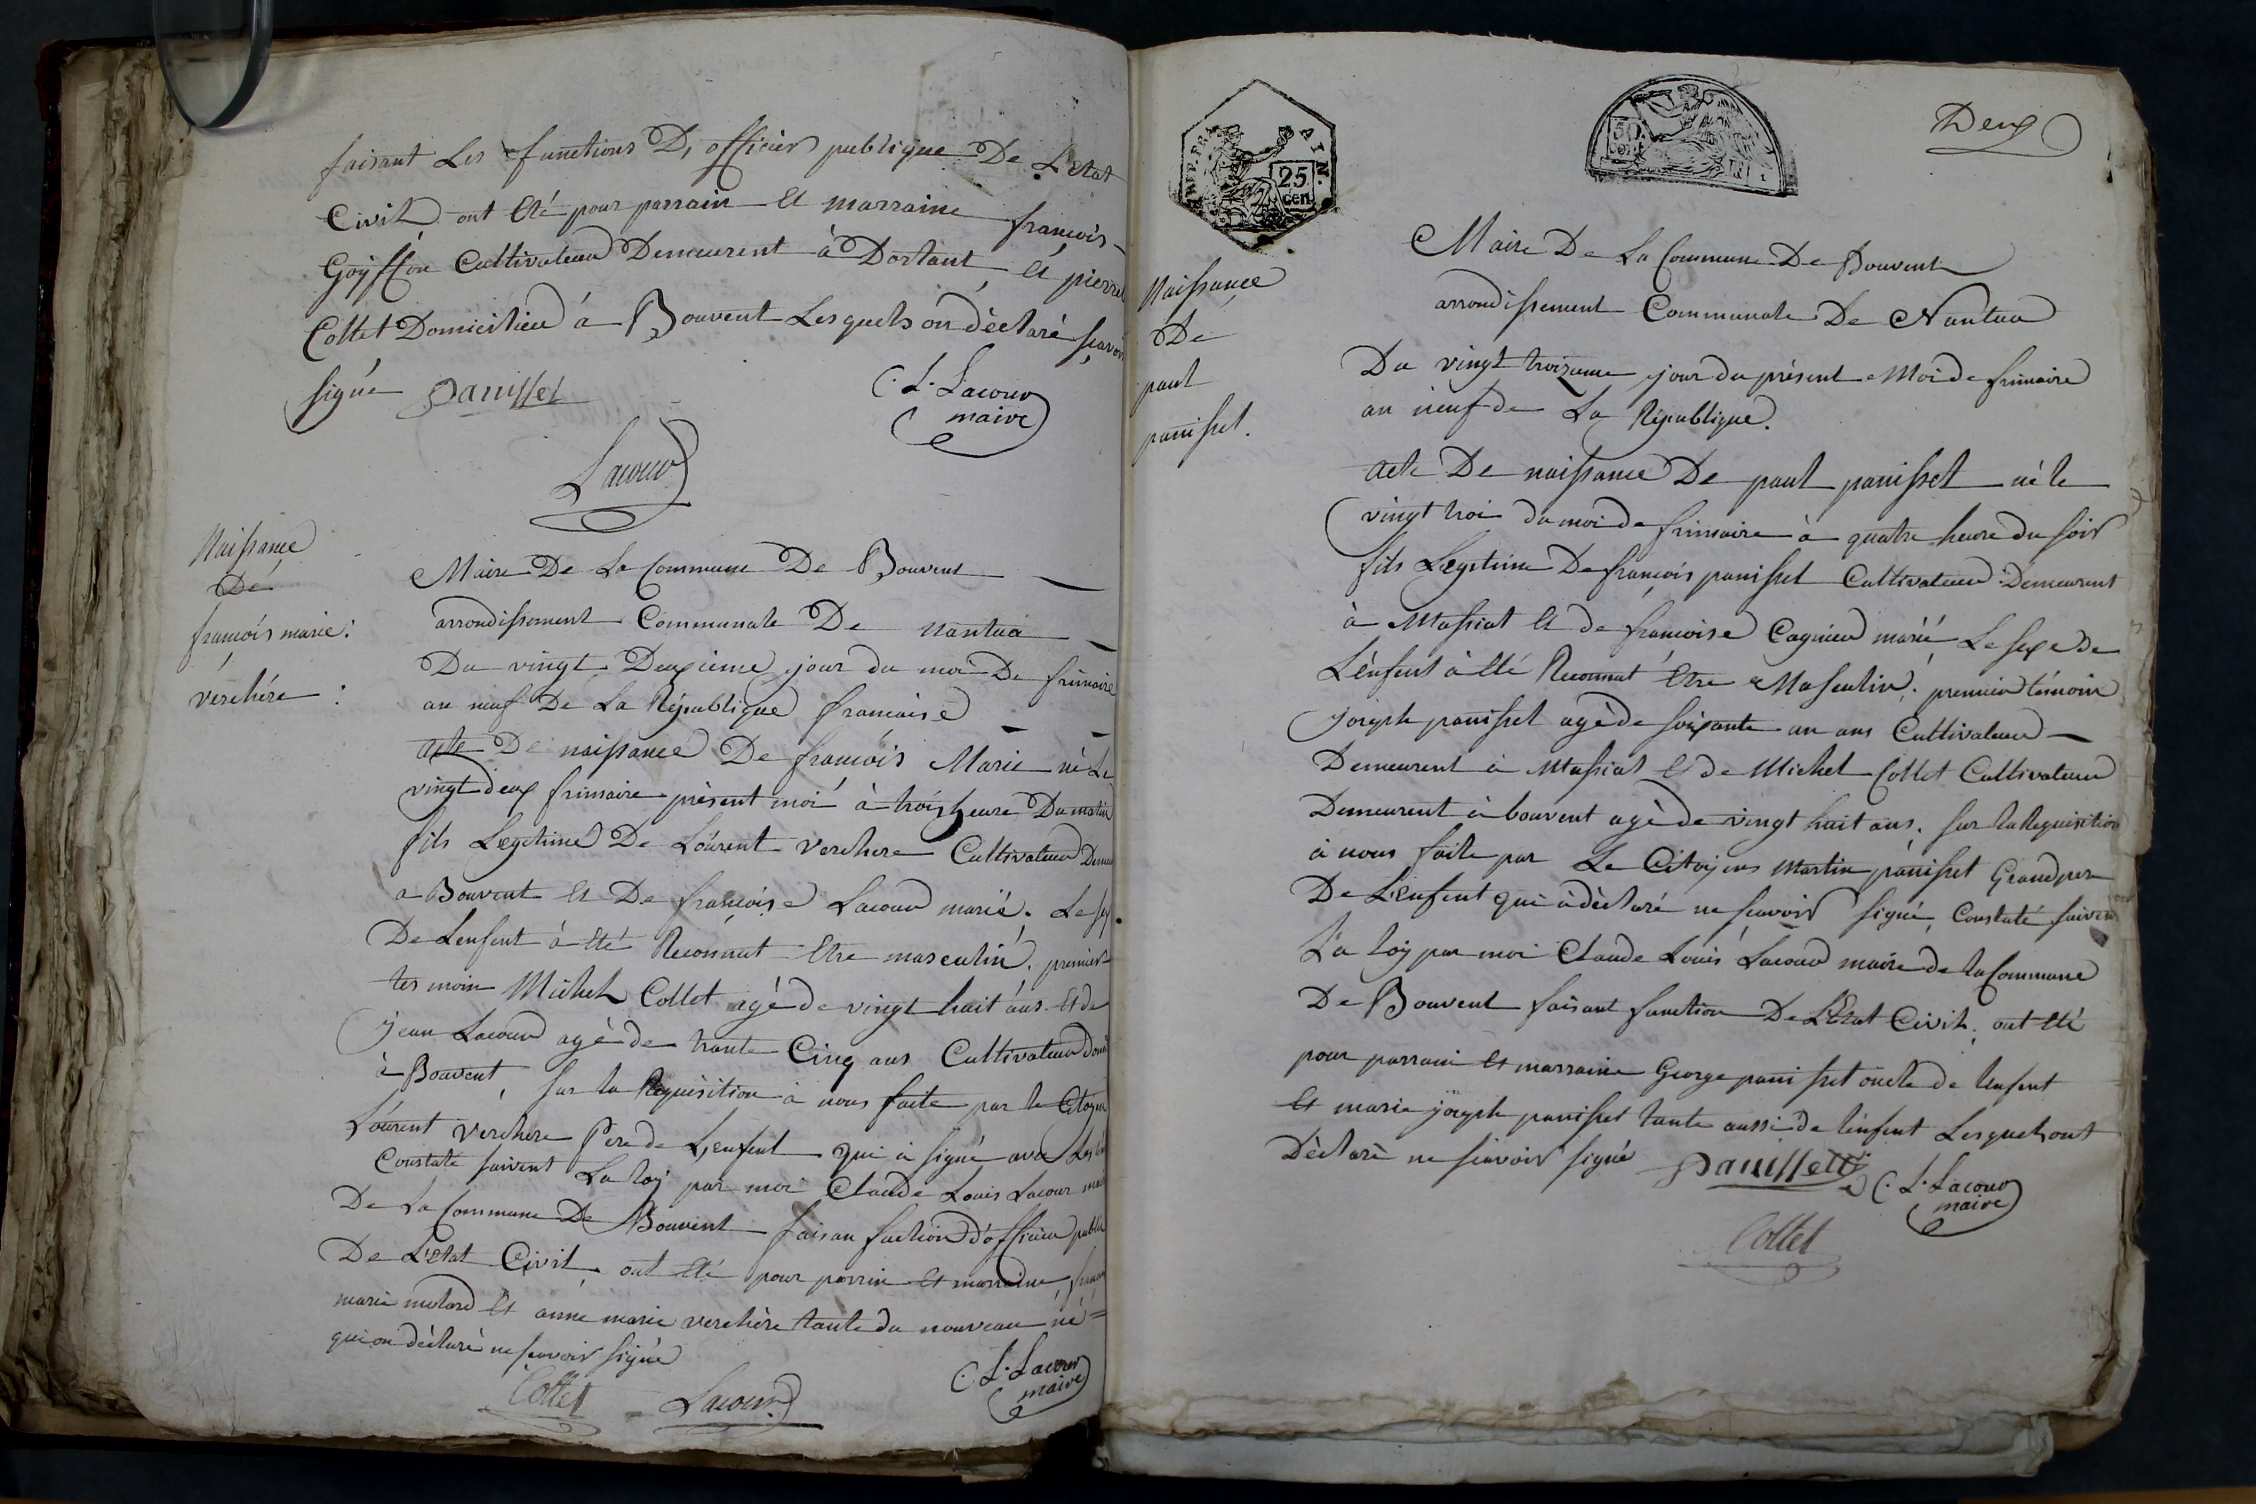 faisant Les functions D, officier publique De L'etat
Civil ont été pour parrain et marraine françois
Goÿffon Cultivateur Demeurent à Dortant et pierre
Collet Domicilieu à Bouvent Lesquels on dèclaré sçavoir
signé Panisset
C. L. Lacour
maire
Lacour
Naissance
De
françois marie:
vérchére :
Maire De La Commune De Bouvent
arrondissement Communale De Nantua
Du vingt Deuxieme jour du moi De frimaire
an neuf De La République francaise
acte De naissance De francois Marie nè Le
vingt deux frimaire présent moi à trois heure Du matin
fils Legitime De Lóurent verchere Cultivateur
a Bouvent et De françoise Lacour marié. Le
De Lenfent à été Reconnut être masculin. premier
tes moin Michel Collet agé de vingt huit ans et de
jean Lacour agé de trante Cinq ans Cultivateur
à Bouvent, sur la Requisition à nous faite par le Citoyen
Lóurent verchere Pere de L,enfent qui à signé avec
Constaté suivent La loÿ par moi Claude Louis Lacour
De La Commune De Bouvent faisan fuction d'officier
De L'etat Civil. ont été pour parrin et marraine,
marie molard et anne marie verchère tante du nouveau né =
qui on dèclaré ne scavoir signé
Collet Lacour
C. L. Lacour
maire
25
cen.
AIN.
50
Deux
Naissance
De
paul
panisset.
Maire De La Commune De Bouvent
arrondissement Communale De Nantua
Du vingt troizieme jour du présent Moi de frimaire
an neuf de La République.
acte De naissance De paul panisset né le
vingt troi du moi de frimaire à quatre heure du soir
fils Legitime De françois panisset Cultivateur Demeurent
à Massiat et de françoise Cagnieu marié Le sexe de
L'énfent à été Reconnut Etre Masculin. premier témoin
joseph panisset agé de soixante un ans Cultivateur
Demeurent à Massiat et de Michel Collet Cultivateur
Demeurent à bouvent agè de vingt huit ans. sur la Requisition
à nous faite par Le Citoyens Martin panisset Grandper
De L'enfent qui à dèclaré ne scavoir signé, Constaté suivent
La loÿ par moi Claude Louis Lacour maire de la Commune
De Bouvent faisant function De L'Etat Civil, ont été
pour parrain et marraine George panisset oncle de l'enfent
et marie joseph panisset tante aussi de lénfent Lesquels ont
Dèclaré ne scavoir signé Panissett
C. L. Lacour
maire
Collet